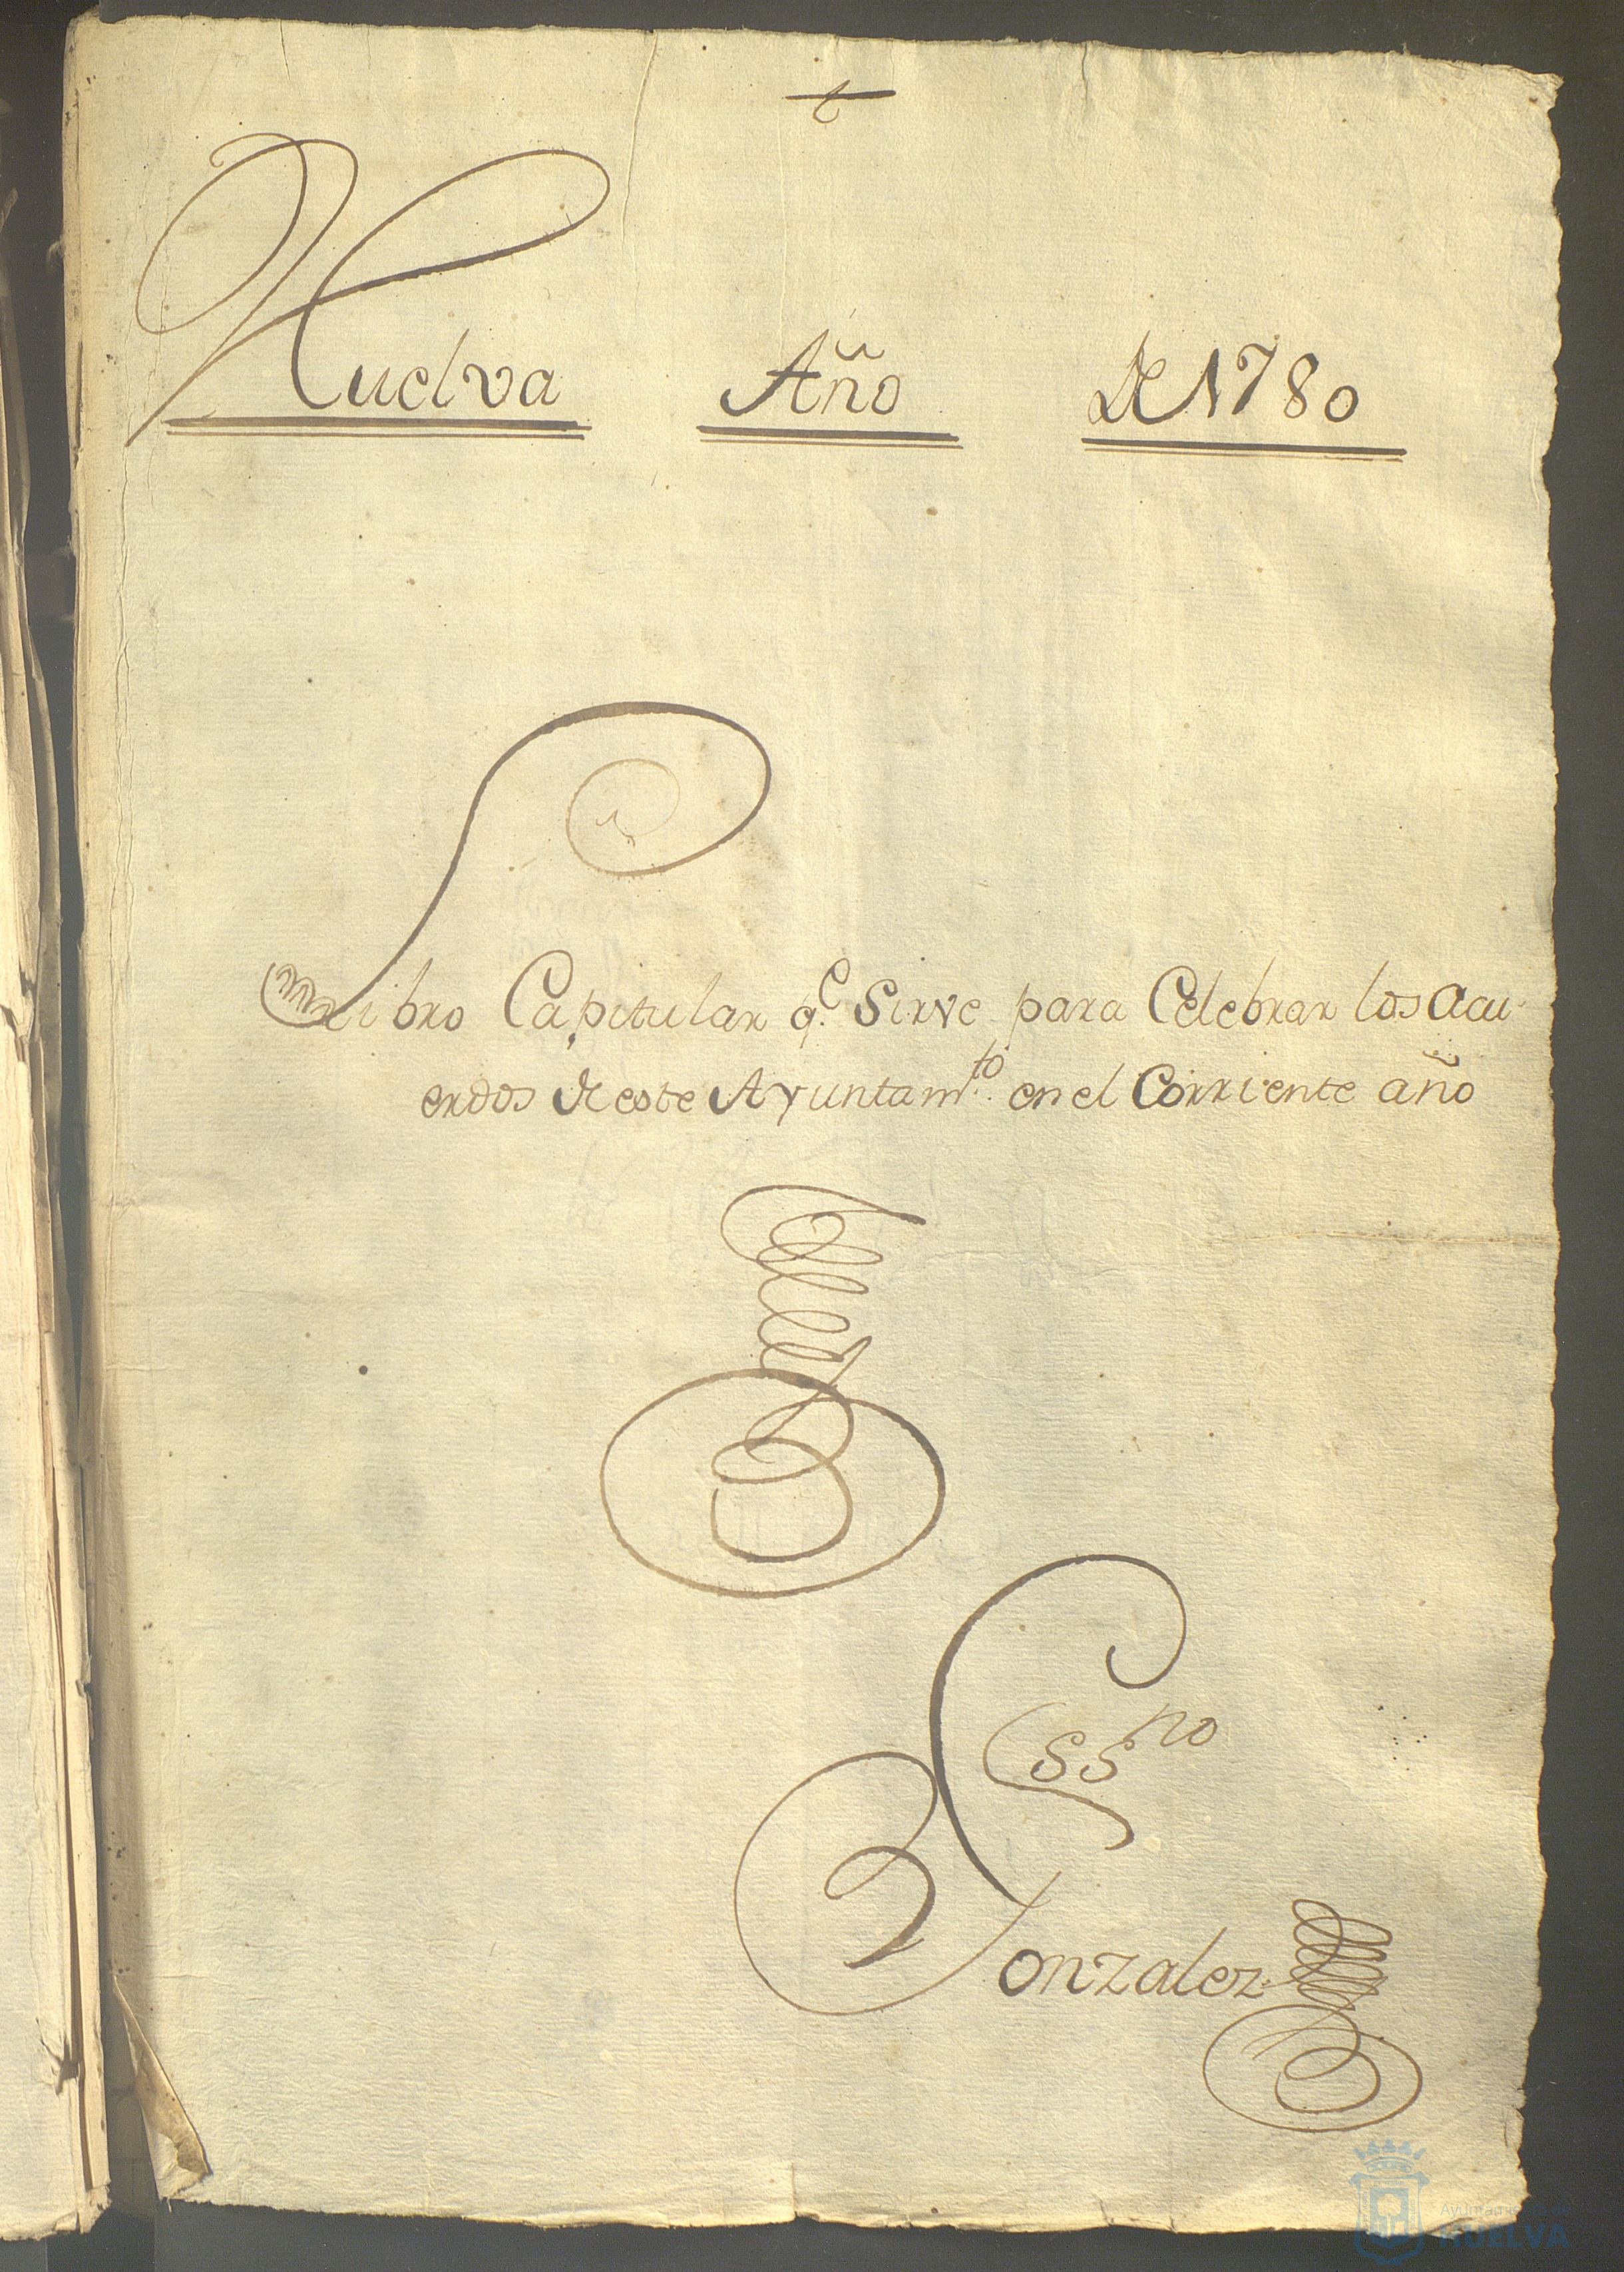 Huelva Año de 1780
Libro Capitular q.e Sirve para Celebrar los acu-
erdos de este Ayuntam.to en el Corriente año
Essno
Gonzalez
Ayuntamiento de
HUELVA